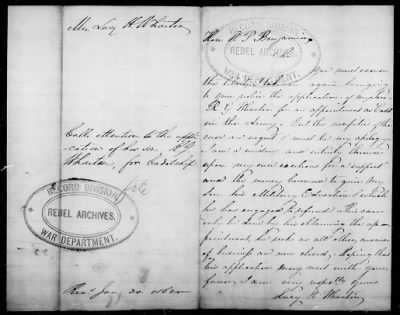 Mrs Lucy H. Wharton
Calls Attention to the appli-
cation of her son, R. Y.
Wharton, for Cadetship
file
RECORD DIVISION
REBEL ARCHIVES,
WAR DEPARTMENT.
Recd Jan. 20. 1862
RECORD DIVISION
REBEL ARCHIVES,
WAR DEPARTMENT.
Hon J. P. Benjamin
You must excuse
the again bringing
to your notice the application of my son
R. Y. Wharton for an appointment as Cadet
in the Army. But the necessities of the
case are urgent & must be my apology
I am a widow and entirely thrown
upon my own exertions for a support
and the money borrowed to give my
son his Military Education which
he has engaged to refund. This can
only be done by his obtaining the ap-
pointment, he seeks as all other avenues
of business are now closed. Hoping that
his application may meet with your
favor, I am very respectfly yours
Lucy H. Wharton